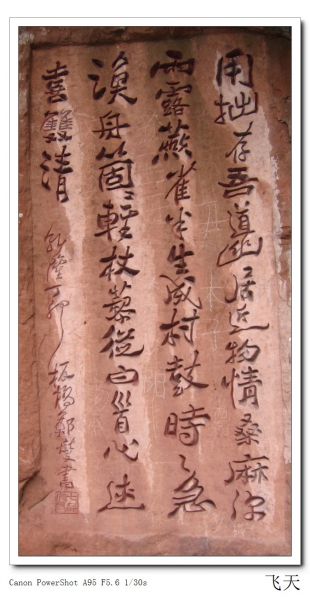 用拙存吾道幽居近物情桑麻深
雨露燕雀半生成村鼓時々急
漁舟箇々輕杖藜從白首心迹
喜雙清
乾隆丁卯 板橋鄭燮書
Canon PowerShot A95 F5.6 1/30s
飞天